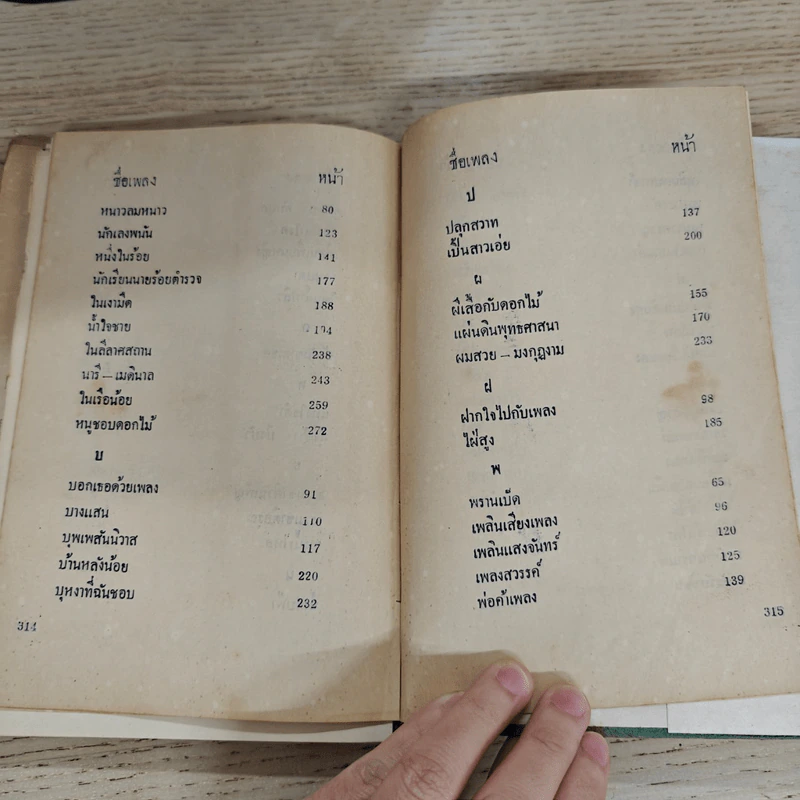 ชื่อเพลง หน้า
หนาวลมหนาว 80
นักเลงพนัน 123
หนึ่งในร้อย 141
นักเรียนนายร้อยตำรวจ 177
ในเงามืด 188
น้ำใจชาย
ในลีลาศสถาน 238
นารี – เมดินาล 243
ในเรือน้อย 259
หนูชอบดอกไม้ 272
บ
บอกเธอด้วยเพลง 91
บางแสน 110
บุพเพสันนิวาส 117
บ้านหลังน้อย 220
บุหงาที่ฉันชอบ 232
314
ชื่อเพลง หน้า
ป
ปลุกสวาท 137
เป็นสาวเอ่ย 200
ผ
ผีเสื้อกับดอกไม้ 155
แผ่นดินพุทธศาสนา 170
ผมสวย – มงกุฎงาม 233
ฝ
ฝากใจไปกับเพลง 98
ไผ่สูง 185
พ
พรานเบ็ด 65
เพลินเสียงเพลง 96
เพลินแสงจันทร์ 120
เพลงสวรรค์ 125
พ่อค้าเพลง 139
315